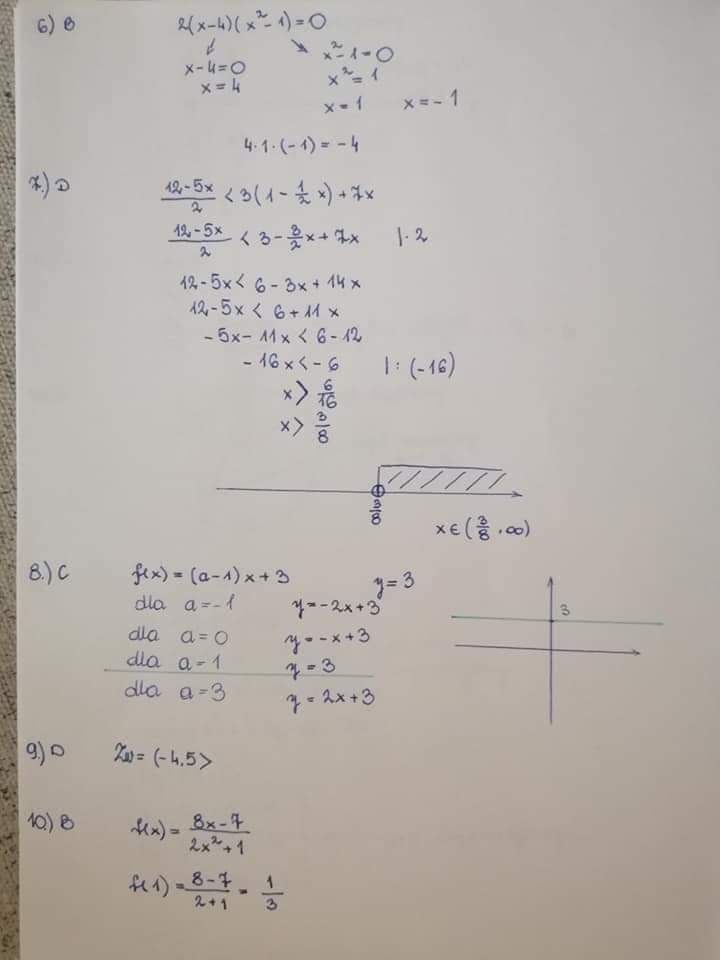 6) B 2(x-4)(x²-1)=0
x-4=0 x²-1=0
x=4 x²=1
x=1 x=-1
4·1·(-1)=-4
7.) D (12-5x)/2 < 3(1-1/2 x)+7x
(12-5x)/2 < 3-3/2x+7x |·2
12-5x< 6-3x+14x
12-5x < 6+11x
-5x-11x < 6-12
-16x<-6 |:(-16)
x> 6/16
x> 3/8
3/8
x∈(3/8,∞)
8.) C f(x)=(a-1)x+3 y=3
dla a=-1 y=-2x+3
dla a=0 y=-x+3
dla a=1 y=3
dla a=3 y=2x+3
3
9.) D Zw=(-4,5>
10.) B f(x)= (8x-7)/(2x²+1)
f(1)=(8-7)/(2+1)= 1/3